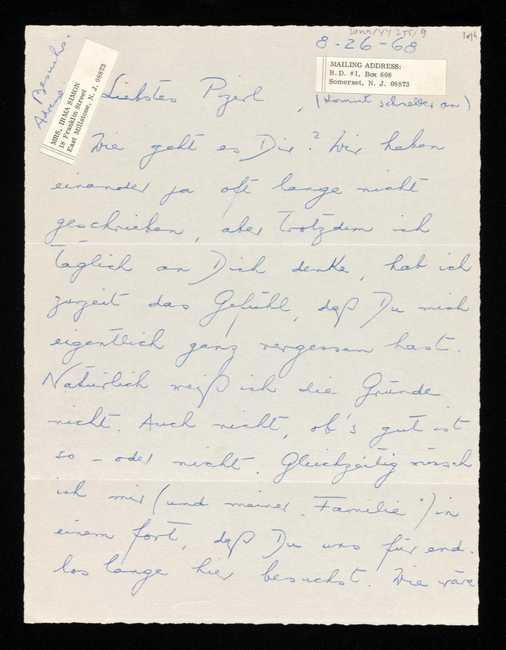 8-26-68
1of6
Besuchs-
Adresse
MRS. IRMA SIMON
18 Franklin Street
East Millstone, N. J. 08873
MAILING ADDRESS:
R.D. #1, Box 606
Somerset, N. J. 08873
Liebstes Pzerl, (Somit schreiber an)
Wie geht es Dir? Wir haben
einander ja oft lange nicht
geschrieben, aber trotzdem ich
täglich an Dich denke, hab ich
zurzeit das Gefühl, daß Du mich
eigentlich ganz vergessen hast.
Natürlich weiß ich die Gründe
nicht. Auch nicht, ob's gut ist
so – oder nicht. Gleichzeitig wünsch
ich mir (und meiner "Familie") in
einem fort, daß Du uns für end-
los lange hier besuchst. Wie wäre